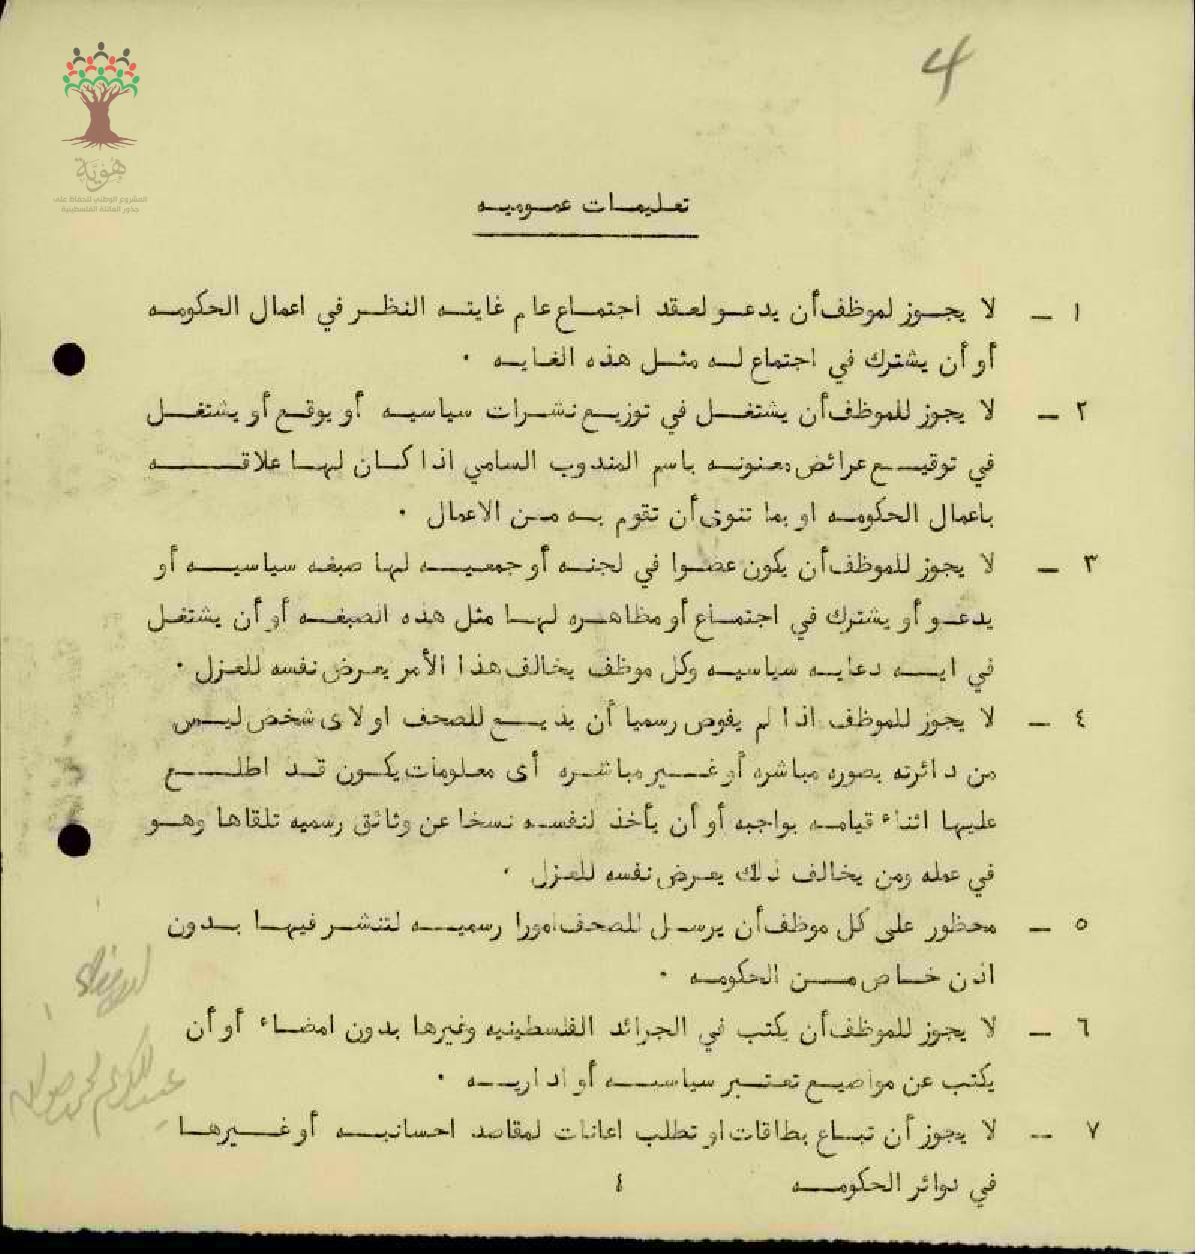 4
هُوِيَّة
المشروع الوطني للحفاظ على
جذور العائلة الفلسطينية
تعليمات عموميه
١ – لا يجوز لموظف أن يدعو لعقد اجتماع عام غايته النظر في اعمال الحكومه
أو أن يشترك في اجتماع له مثل هذه الغايه .
٢ – لا يجوز للموظف أن يشتغل في توزيع نشرات سياسيه أو يوقع أو يشتغل
في توقيع عرائض معنونه باسم المندوب السامي اذا كان لها علاقه
باعمال الحكومه او بما تنوى أن تقوم به من الاعمال .
٣ – لا يجوز للموظف أن يكون عضوا في لجنه أو جمعيه لها صبغه سياسيه أو
يدعو أو يشترك في اجتماع أو مظاهره لها مثل هذه الصبغه أو أن يشتغل
في ايه دعايه سياسيه وكل موظف يخالف هذا الأمر يعرض نفسه للعزل .
٤ – لا يجوز للموظف اذا لم يفوض رسميا أن يذيع للصحف او لاى شخص ليس
من دائرته بصوره مباشره أو غير مباشره أى معلومات يكون قد اطلع
عليها اثناء قيامه بواجبه أو أن يأخذ لنفسه نسخا عن وثائق رسميه تلقاها وهو
في عمله ومن يخالف ذلك يعرض نفسه للعزل .
٥ – محظور على كل موظف أن يرسل للصحف امورا رسميه لتنشر فيها بدون
اذن خاص من الحكومه .
٦ – لا يجوز للموظف أن يكتب في الجرائد الفلسطينيه وغيرها بدون امضاء أو أن
يكتب عن مواضيع تعتبر سياسيه أو اداريه .
٧ – لا يجوز أن تباع بطاقات او تطلب اعانات لمقاصد احسانيه أو غيرها
في دوائر الحكومه ٤